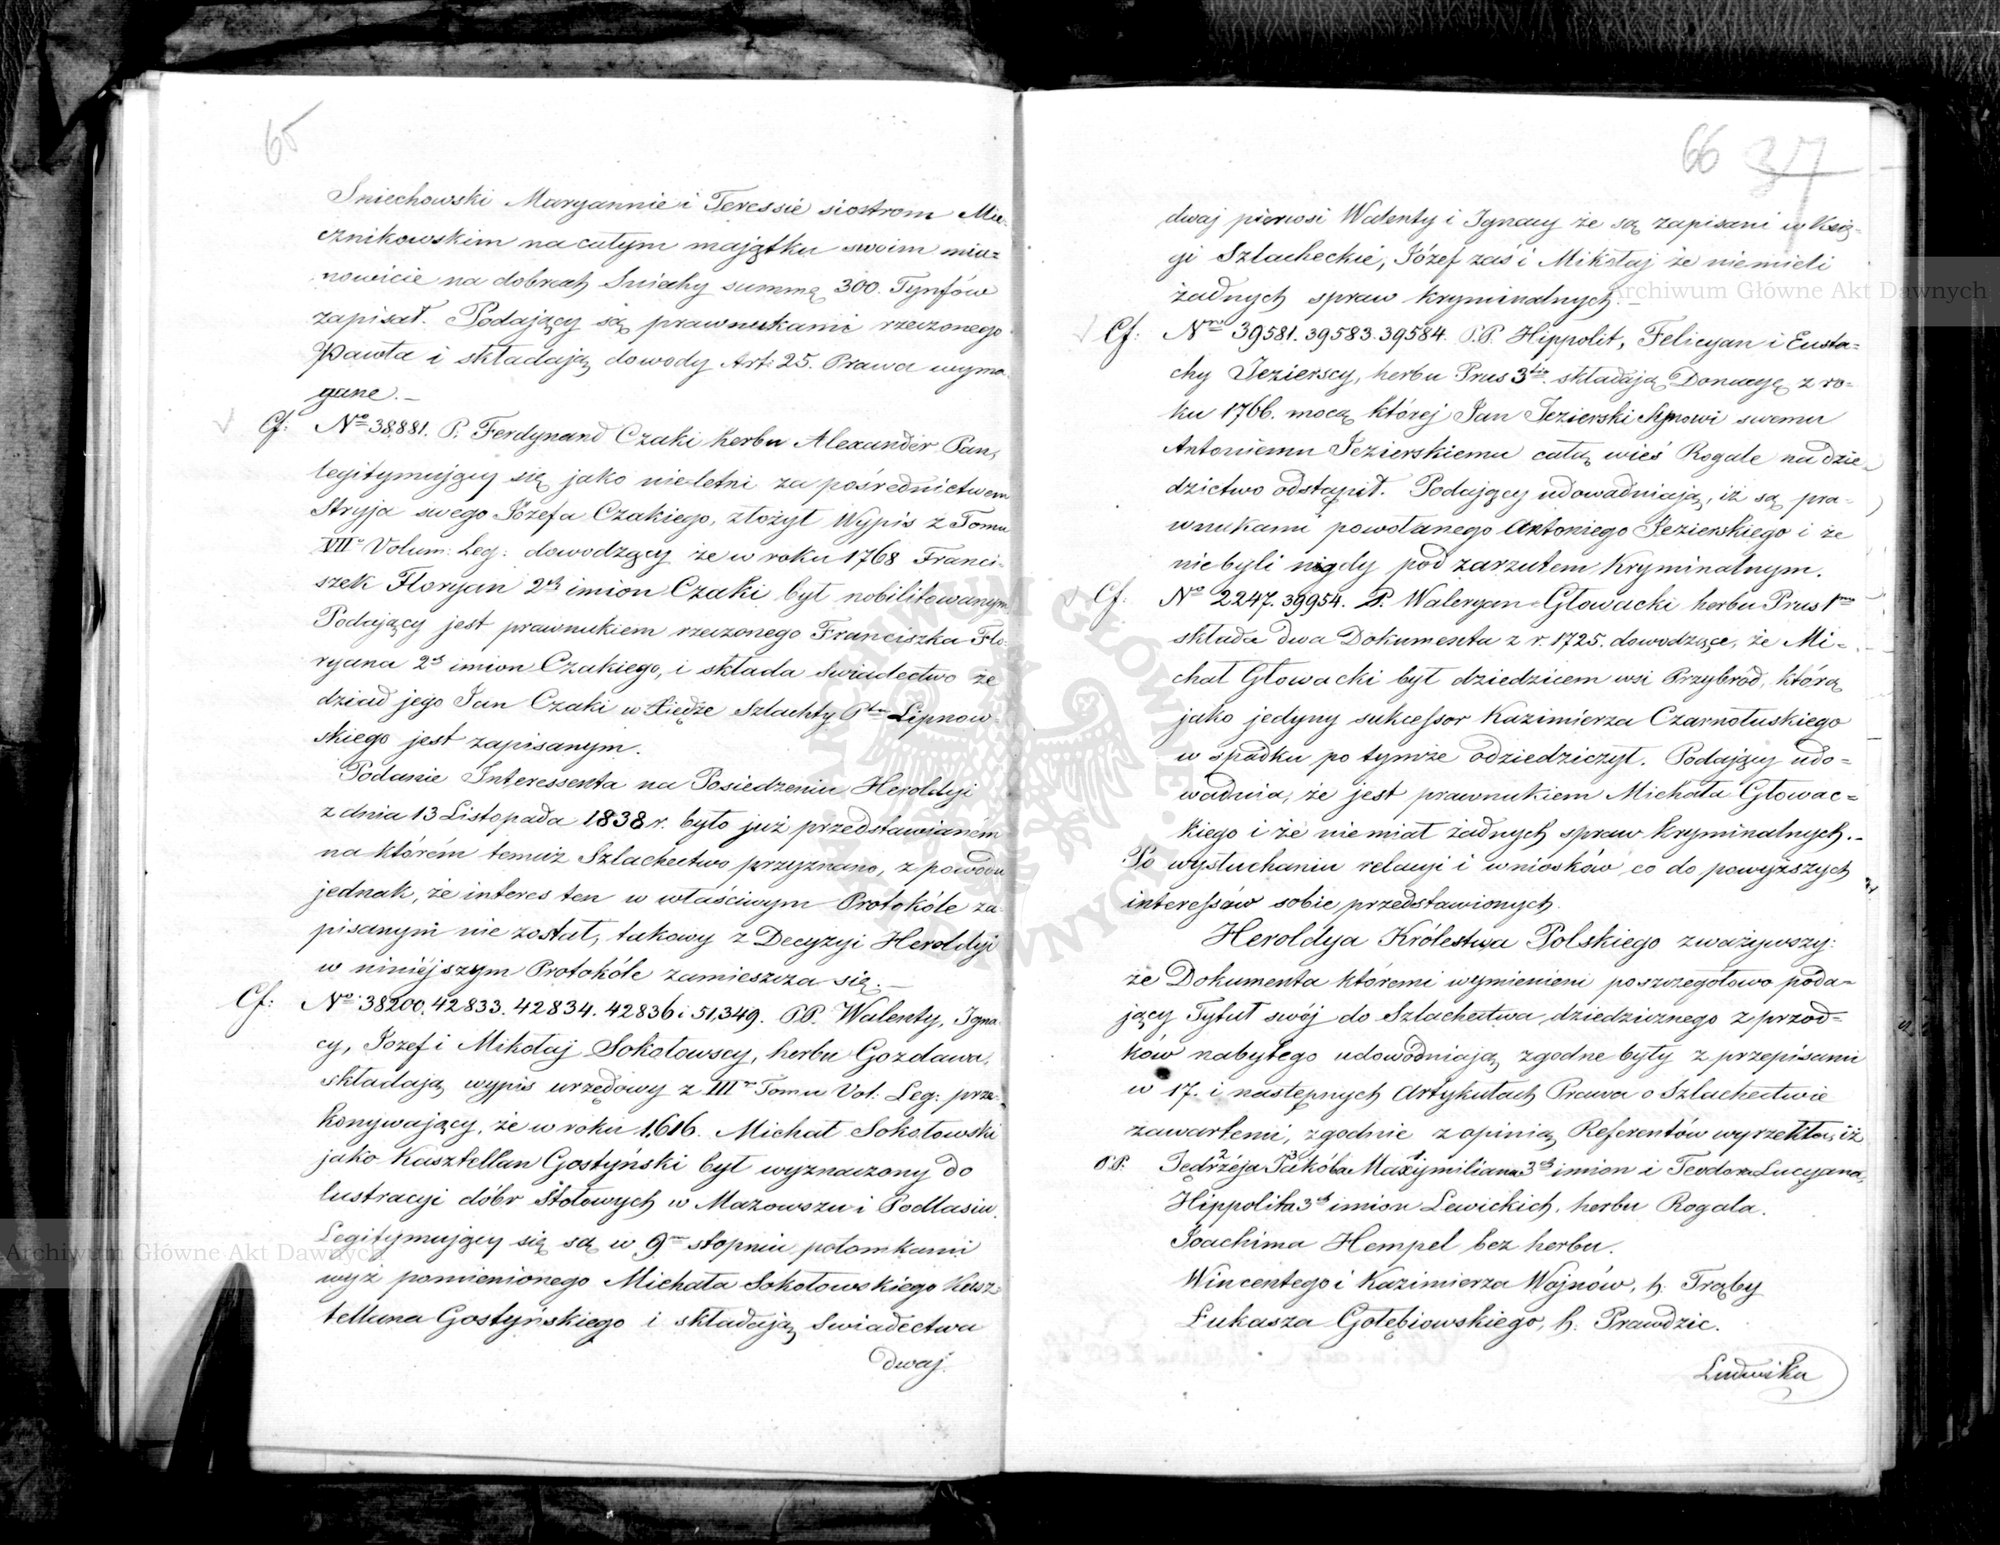 65
Sniechowski Maryannie i Teressie siostrom Mie-
cznikowskim na całym majątku swoim mia-
nowicie na dobrach Sniechy summę 300. Tynfów
zapisał. Podający są prawnukami rzeczonego
Pawła i składają dowody Art: 25. Prawa wyma-
gane.
Cf: No 38,881. P. Ferdynand Czaki herbu Alexander Pan,
legitymujący się jako nieletni za pośrednictwem
Stryja swego Józefa Czakiego, złożył Wypis z Tomu
VIIo Volum: Leg: dowodzący że w roku 1768 Franci-
szek Floryan 2ch imion Czaki był nobilitowanym
Podający jest prawnukiem rzeczonego Franciszka Flo-
ryana 2ch imion Czakiego, i składa swiadectwo że
dziad jego Jan Czaki w Xiędze Szlachty Ptu Lipnow-
skiego jest zapisanym.
Podanie Interessenta na Posiedzeniu Heroldyi
z dnia 13 Listopada 1838 r. było już przedstawianém
na którém temuż Szlachectwo przyznano, z powodu
jednak, że interes ten w właściwym Protokóle za-
pisanym nie został, takowy z Decyzyi Heroldyi
w niniejszym Protokóle zamieszcza się.
Cf: No 38200, 42833. 42834. 42836 i 51,349. P.P. Walenty, Igna-
cy, Józef i Mikołaj Sokołowscy, herbu Gozdawa,
składają wypis urzędowy z IIIo Tomu Vol: Leg: prze-
konywający, że w roku 1616. Michał Sokołowski
jako Kasztellan Gostyński był wyznaczony do
lustracyi dóbr Stołowych w Mazowszu i Podlasiu.
Legitymujący się są w 9m stopniu potomkami
wyż pomienionego Michała Sokołowskiego Kasz-
tellana Gostyńskiego i składają Swiadectwa
dwaj.
66 37
dwaj pierwsi Walenty i Ignacy że są zapisani w Księ-
gi Szlacheckie, Józef zaś i Mikołaj że niemieli
żadnych spraw kryminalnych.
Cf: Nra 39581. 39583. 39584. P.P. Hippolit, Felicyan i Eusta-
chy Jezierscy, herbu Prus 3tio składają Donacyę z ro-
ku 1766. mocą której Jan Jezierski Synowi swemu
Antoniemu Jezierskiemu całą wieś Rogale na dzie-
dzictwo odstąpił. Podający udowadniają, iż są pra-
wnukami powołanego Antoniego Jezierskiego i że
niebyli nigdy pod zarzutem kryminalnym.
Cf: No 2247. 39954. P. Waleryan Głowacki herbu Prus 1mo
składa dwa Dokumenta z r. 1725. dowodzące, że Mi-
chał Głowacki był dziedzicem wsi Przybród, którą
jako jedyny sukcessor Kazimierza Czarnołuskiego
w spadku po tymże odziedziczył. Podający udo-
wadnia, że jest prawnukiem Michała Głowac-
kiego i że niemiał żadnych spraw kryminalnych.
Po wysłuchaniu relacyi i wniosków co do powyższych
interessów sobie przedstawionych.
Heroldya Królestwa Polskiego zważywszy:
że Dokumenta któremi wymienieni poszczegółowo poda-
jący Tytuł swój do Szlachectwa dziedzicznego z przod-
ków nabytego udowodniają, zgodne były z przepisami
w 17. i następnych Artykułach Prawa o Szlachectwie
zawartemi, zgodnie z opinią Referentów wyrzekła, iż
P.P. Jędrzéja 2 Jakóba 3 Maxymiliana 1 3ch imion i Teodora Lucyana,
Hippolita 3ch imion Lewickich, herbu Rogala.
Joachima Hempel bez herbu.
Wincentego i Kazimierza Wojnów, h. Trąby
Łukasza Gołębiowskiego, h. Prawdzic.
Ludwika
Archiwum Główne Akt Dawnych
Archiwum Główne Akt Dawnych
ARCHIWUM GŁÓWNE AKT DAWNYCH